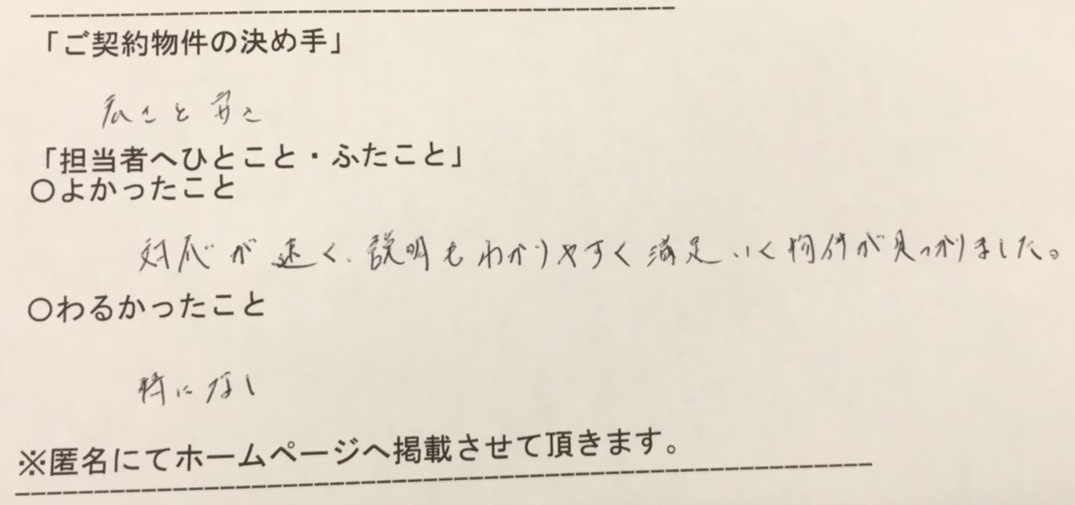 「ご契約物件の決め手」
広さと安さ
「担当者へひとこと・ふたこと」
○よかったこと
対応が速く、説明もわかりやすく満足いく物件が見つかりました。
○わるかったこと
特になし
※匿名にてホームページへ掲載させて頂きます。